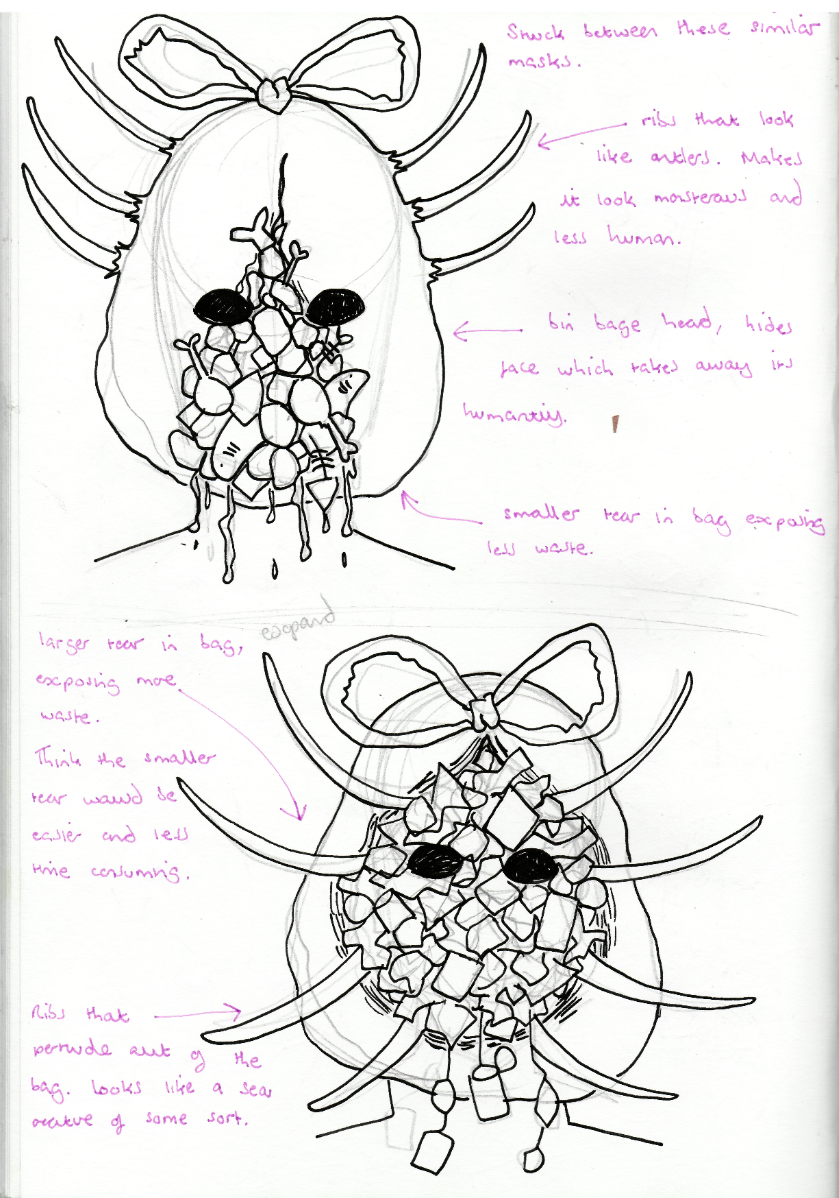 Stuck between these similar
masks.
ribs that look
like antlers. Makes
it look monsterous and
less human.
bin bage head, hides
face which takes away its
humantiy.
smaller tear in bag exposing
less waste.
larger tear in bag,
exspand
exposing more
waste.
Think the smaller
tear would be
easier and less
time consuming.
Ribs that
pertrude out of the
bag. Looks like a sea
creature of some sort.